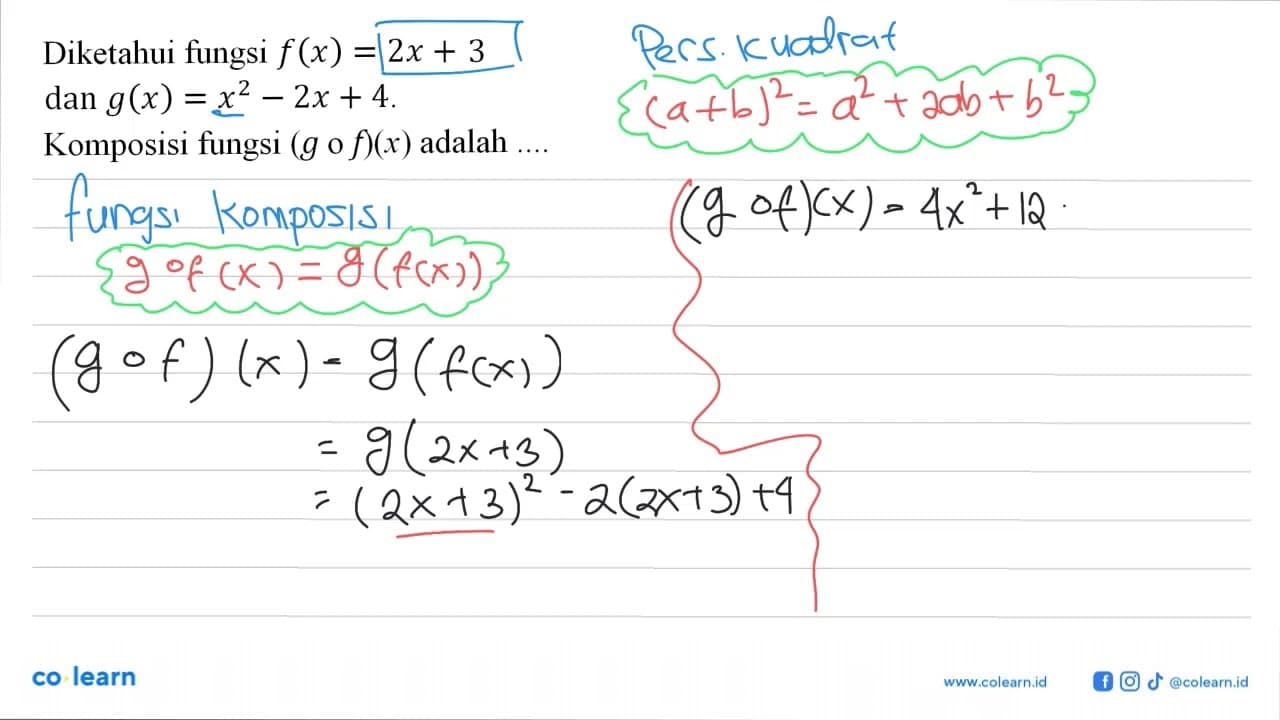 Diketahui fungsi f(x) = 2x + 3
dan g(x) = x² − 2x + 4.
Komposisi fungsi (g o f)(x) adalah ....
Pers. Kuadrat
(a+b)² = a² + 2ab + b²
fungsi Komposisi
g of (x) = g(f(x))
(g o f) (x) = g(f(x))
= g(2x+3)
= (2x+3)² - 2(2x+3) +4
(g of)(x) = 4x² + 12
co learn
www.colearn.id
@colearn.id